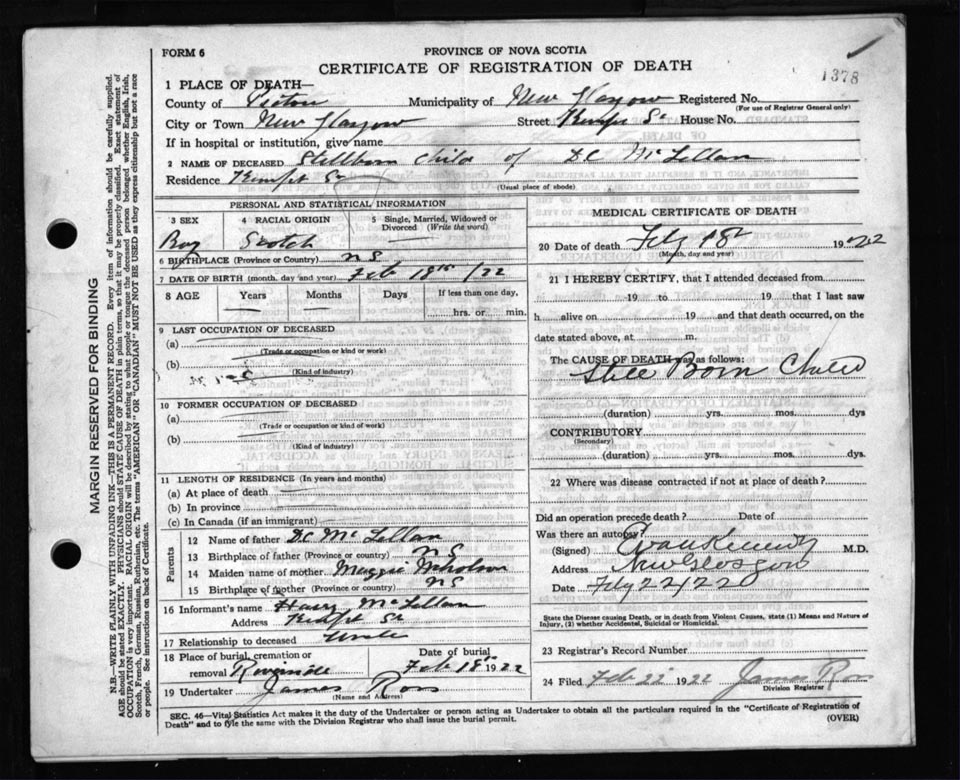 FORM 6
PROVINCE OF NOVA SCOTIA
CERTIFICATE OF REGISTRATION OF DEATH
1378
1 PLACE OF DEATH—
County of Pictou Municipality of New Glasgow Registered No.
(For use of Registrar General only)
City or Town New Glasgow Street Kempt St House No.
If in hospital or institution, give name
2 NAME OF DECEASED Stillborn Child of D.C. McLellan
Residence Kempt St
(Usual place of abode)
PERSONAL AND STATISTICAL INFORMATION
3 SEX 4 RACIAL ORIGIN 5 Single, Married, Widowed or Divorced (Write the word)
Boy Scotch
6 BIRTHPLACE (Province or Country) N S
7 DATE OF BIRTH (month, day and year) Feb 18th /22
8 AGE Years Months Days If less than one day,
hrs. or min.
9 LAST OCCUPATION OF DECEASED
(a)
(Trade or occupation or kind or work)
(b)
(Kind of industry)
10 FORMER OCCUPATION OF DECEASED
(a)
(Trade or occupation or kind of work)
(b)
(Kind of industry)
11 LENGTH OF RESIDENCE (In years and months)
(a) At place of death
(b) In province
(c) In Canada (if an immigrant)
Parents
12 Name of father D.C. McLellan
13 Birthplace of father (Province or country) N S
14 Maiden name of mother Maggie
15 Birthplace of mother (Province or country) N S
16 Informant's name Harry McLellan
Address Kempt St
17 Relationship to deceased Uncle
18 Place of burial, cremation or removal Date of burial
Feb 18th 1922
19 Undertaker James Ross
(Name and Address)
MEDICAL CERTIFICATE OF DEATH
20 Date of death Feby 18 1922
(Month, day and year)
21 I HEREBY CERTIFY, that I attended deceased from
19 to 19 that I last saw
h alive on 19 and that death occurred, on the
date stated above, at m.
The CAUSE OF DEATH was as follows:
Still Born Child
(duration) yrs. mos. dys
CONTRIBUTORY
(Secondary)
(duration) yrs. mos. dys.
22 Where was disease contracted if not at place of death?
Did an operation precede death? Date of
Was there an autopsy?
(Signed) Evan Kennedy M.D.
Address New Glasgow
Date Feby 22/22
State the Disease causing Death, or in death from Violent Causes, state (1) Means and Nature of Injury, (2) whether Accidental, Suicidal or Homicidal.
23 Registrar's Record Number
24 Filed Feb 22 1922 James Ross
Division Registrar
SEC. 46—Vital Statistics Act makes it the duty of the Undertaker or person acting as Undertaker to obtain all the particulars required in the "Certificate of Registration of
Death" and to fyle the same with the Division Registrar who shall issue the burial permit.
(OVER)
MARGIN RESERVED FOR BINDING
N.B.—WRITE PLAINLY WITH UNFADING INK—THIS IS A PERMANENT RECORD. Every item of information should be carefully supplied.
AGE should be stated EXACTLY. PHYSICIANS should STATE CAUSE OF DEATH in plain terms, so that it may be properly classified. Exact statement of
OCCUPATION is very important. RACIAL ORIGIN will be described by stating to what people or tongue the deceased person belonged whether English, Irish,
Scotch, French, German, Russian, Ruthenian, etc. The terms "AMERICAN" or "CANADIAN" MUST NOT BE USED as they express citizenship but not a race
or people. See instructions on back of Certificate.